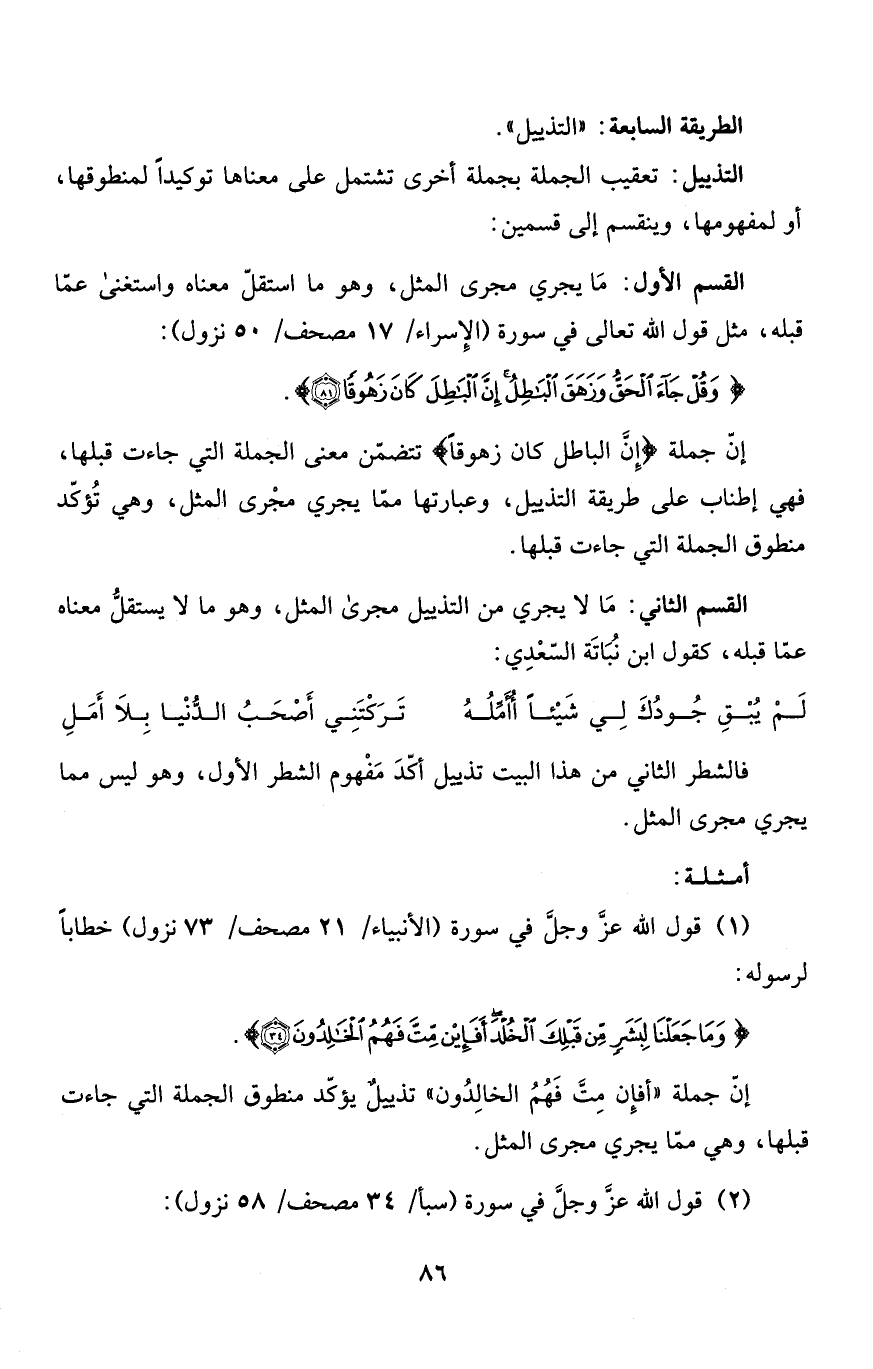 الطريقة السابعة: «التذييل».
التذييل: تعقيب الجملة بجملة أخرى تشتمل على معناها توكيداً لمنطوقها،
أو لمفهومها، وينقسم إلى قسمين:
القسم الأول: مَا يجري مجرى المثل، وهو ما استقلّ معناه واستغنىٰ عمّا
قبله، مثل قول الله تعالى في سورة (الإسراء/ ١٧ مصحف/ ٥٠ نزول):
﴿ وَقُلْ جَآءَ ٱلْحَقُّ وَزَهَقَ ٱلْبَٰطِلُ ۚ إِنَّ ٱلْبَٰطِلَ كَانَ زَهُوقًا ٨١﴾.
إنّ جملة ﴿إِنَّ الباطل كان زهوقاً﴾ تتضمّن معنى الجملة التي جاءت قبلها،
فهي إطناب على طريقة التذييل، وعبارتها ممّا يجري مجْرى المثل، وهي تُؤكّد
منطوق الجملة التي جاءت قبلها.
القسم الثاني: مَا لا يجري من التذييل مجرىٰ المثل، وهو ما لا يستقلُّ معناه
عمّا قبله، كقول ابن نُبَاتَة السّعْدِي:
لَــمْ يُبْــقِ جُــودُكَ لِــي شَيْئــاً أُؤَمِّلُــهُ تَـرَكْتَنِـي أَصْحَـبُ الـدُّنْيـا بِـلاَ أَمَـلِ
فالشطر الثاني من هذا البيت تذييل أكّدَ مَفْهوم الشطر الأول، وهو ليس مما
يجري مجرى المثل.
أمـثـلـة:
(١) قول الله عزَّ وجلَّ في سورة (الأنبياء/ ٢١ مصحف/ ٧٣ نزول) خطاباً
لرسوله:
﴿ وَمَا جَعَلْنَا لِبَشَرٍ مِّن قَبْلِكَ ٱلْخُلْدَ ۖ أَفَإِي۟ن مِّتَّ فَهُمُ ٱلْخَٰلِدُونَ ٣٤﴾.
إنّ جملة «أفإِن مِتَّ فَهُمُ الخالِدُون» تذييلٌ يؤكّد منطوق الجملة التي جاءت
قبلها، وهي ممّا يجري مجرى المثل.
(٢) قول الله عزَّ وجلَّ في سورة (سبأ/ ٣٤ مصحف/ ٥٨ نزول):
٨٦